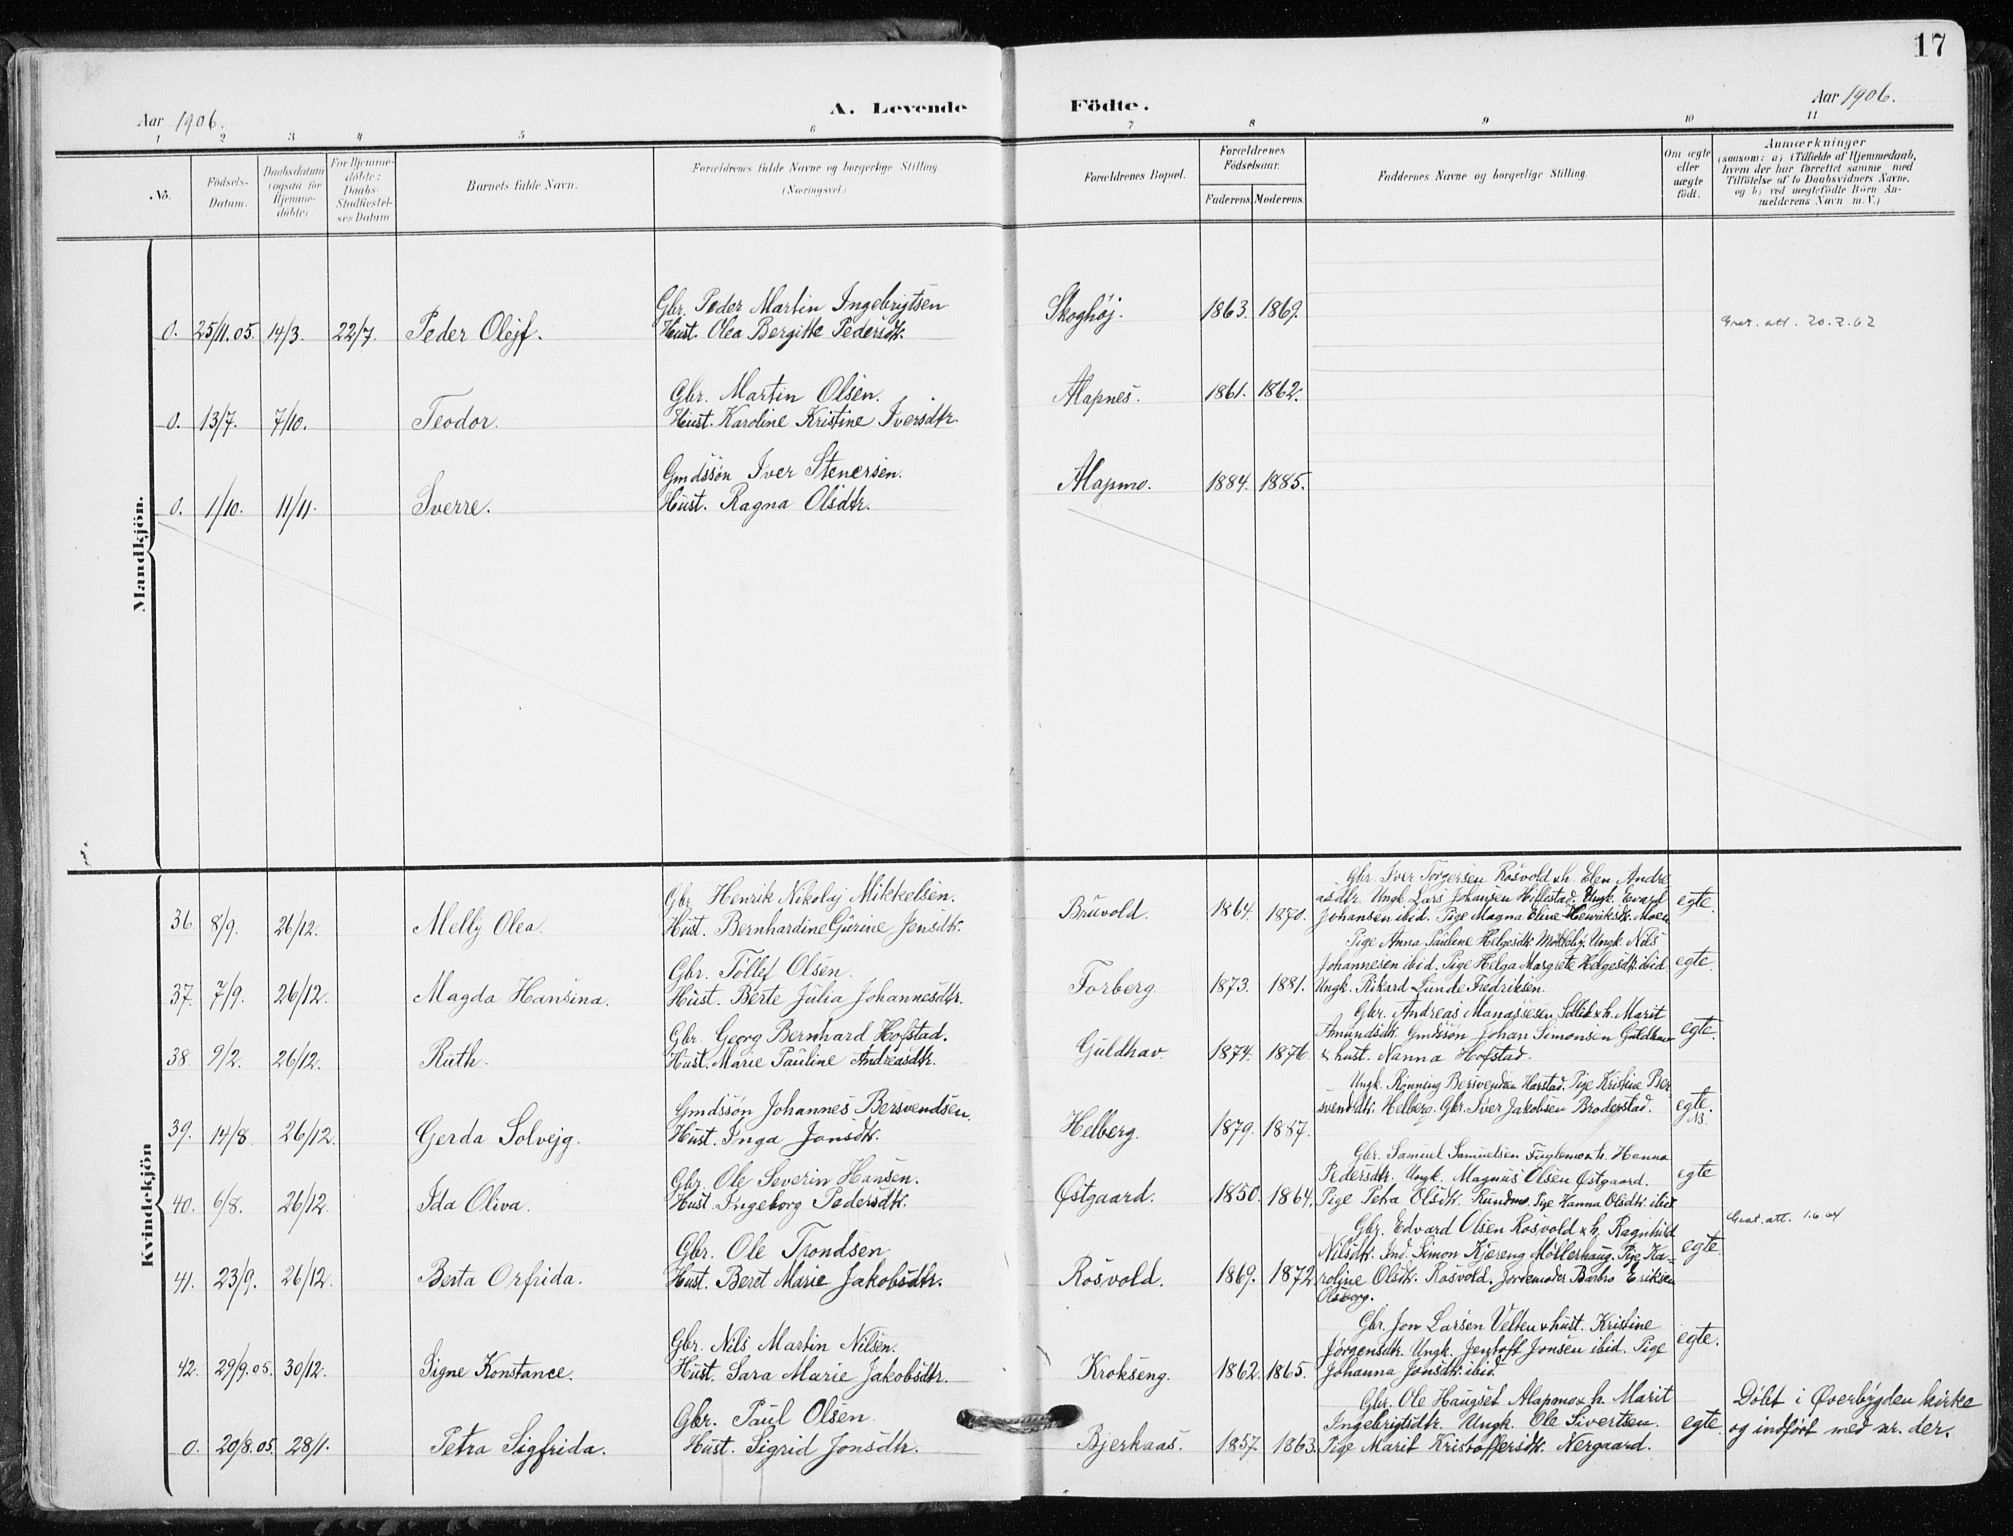 17
Aar 1906.
A. Levende
Födte.
Aar 1906.
1 2 3 4 5 6 7 8 9 10 11
No.
Födsels-Datum.
Daabsdatum (ogsaa for Hjemme-döbte)
For Hjemme-döbte: Daabs-Stadfæstel-ses Datum
Barnets fulde Navn.
Forældrenes fulde Navne og borgerlige Stilling (Næringsvei.)
Forældrenes Bopæl.
Forældrenes Födselsaar.
Faderens. Moderens.
Faddernes Navne og borgerlige Stilling.
Om ægte eller uægte födt.
Anmærkninger
(saasom: a) i Tilfælde af Hjemmedaab,
hvem der har forrettet samme, med
Tilföielse af to Daabsvidners Navne,
og b) ved uægtefödte Börn An-
melderens Navn m. V.)
Mandkjön.
Gbr. Peder Martin Ingebrigtsen Skoghøj. 1863. 1869.
0. 25/11.05. 14/3. 22/7. Peder Olejf. Hust. Olea Bergitte Pedersdtr. Grat. att. 20.2.62
Gbr. Martin Olsen. Alapnes. 1861. 1862.
0. 13/7. 7/10. Teodor. Hust. Karoline Kristine Iversdtr.
Gmdssøn Iver Stenersen. Alapmo. 1884. 1885.
0. 1/10. 11/11. Sverre. Hust. Ragna Olsdtr.
Kvindekjön
Gbr. Iver Torgersen Rosvold & h. Elen Andre
Gbr. Henrik Nikolaj Mikkelsen. Bruvold. 1864. 1870. asdtr. Ungk. Lars Johansen Ungk. Evard egte.
36. 8/9. 26/12. Melly Olea. Hust. Bernhardine Gurine Jensdtr. Johansen ibid. Pige Magna Eline Henriksdtr. Moen
Pige Anna Pauline Helgesdtr. Møkleby. Ungk. Nils
Gbr. Tollef Olsen. Johannesen ibid. Pige Helga Margrete Helgesdtr. ibid. egte.
37. 7/9. 26/12. Magda Hansina. Hust. Berte Julia Johannesdtr. Forberg 1873. 1881. Ungk. Rikard Lunde Fredriksen.
Gbr. Andreas Manassesen & h. Marit
Gbr. Georg Bernhard Hofstad. Amundsdtr. Gmdssøn Johan Simonsen Guldhav egte.
38. 9/2. 26/12. Ruth. Hust. Marie Pauline Andreasdtr. Guldhav 1874. 1876 & hust. Nanna Hofstad.
Ungk. Rønning Bersvendsen Harstad. Pige Kristine Ber
Gmdssøn Johannes Bersvendsen. svendsdtr. Helberg. Gbr. Iver Jakobsen Broderstad. egte.
39. 14/8. 26/12. Gerda Solvejg. Hust. Inga Jonsdtr. Helberg. 1879. 1887.
Gbr. Samuel Samuelsen Fuglemo & h. Hanna
Gbr. Ole Severin Hansen. Pedersdtr. Ungk. Magnus Olsen Østgaard. egte
40. 6/8. 26/12. Ida Oliva. Hust. Ingeborg Pedersdtr. Østgaard. 1850. 1864. Pige Petra Olsdtr. Rundmo. Pige Hanna Olsdtr. ibid
Gbr. Edvard Olsen Rosvold & h. Ragnhild Grat. att. 1.6.64
Gbr. Ole Trondsen Nilsdtr. Ind. Simon Kjereng Møllerhaug. Pige Ka- egte.
41. 23/9. 26/12. Berta Orfrida. Hust. Beret Marie Jakobsdtr. Rosvold. 1869. 1872 roline Olsdtr. Rosvold. Jordemoder Barbro Eriksen
Olsborg.
Gbr. Jon Larsen Velten & hust. Kristine
Gbr. Nils Martin Nilsen. Jørgensdtr. Ungk. Jentoft Jonsen ibid. Pige egte.
42. 29/9.05. 30/12. Signe Konstance. Hust. Sara Marie Jakobsdtr. Krokseng. 1862. 1865. Johanna Jonsdtr. ibid.
Gbr. Ole Haugset Alapmo & h. Marit Döbt i Øverbygden kirke
Gbr. Paul Olsen. Ingebrigtsdtr. Ungk. Ole Sivertsen. egte. og indført med nr. der.
0. 20/8.05. 28/1. Petra Sigfrida. Hust. Sigrid Jonsdtr. Bjerkaas. 1857. 1863. Pige Marit Kristoffersdtr. Nergaard.